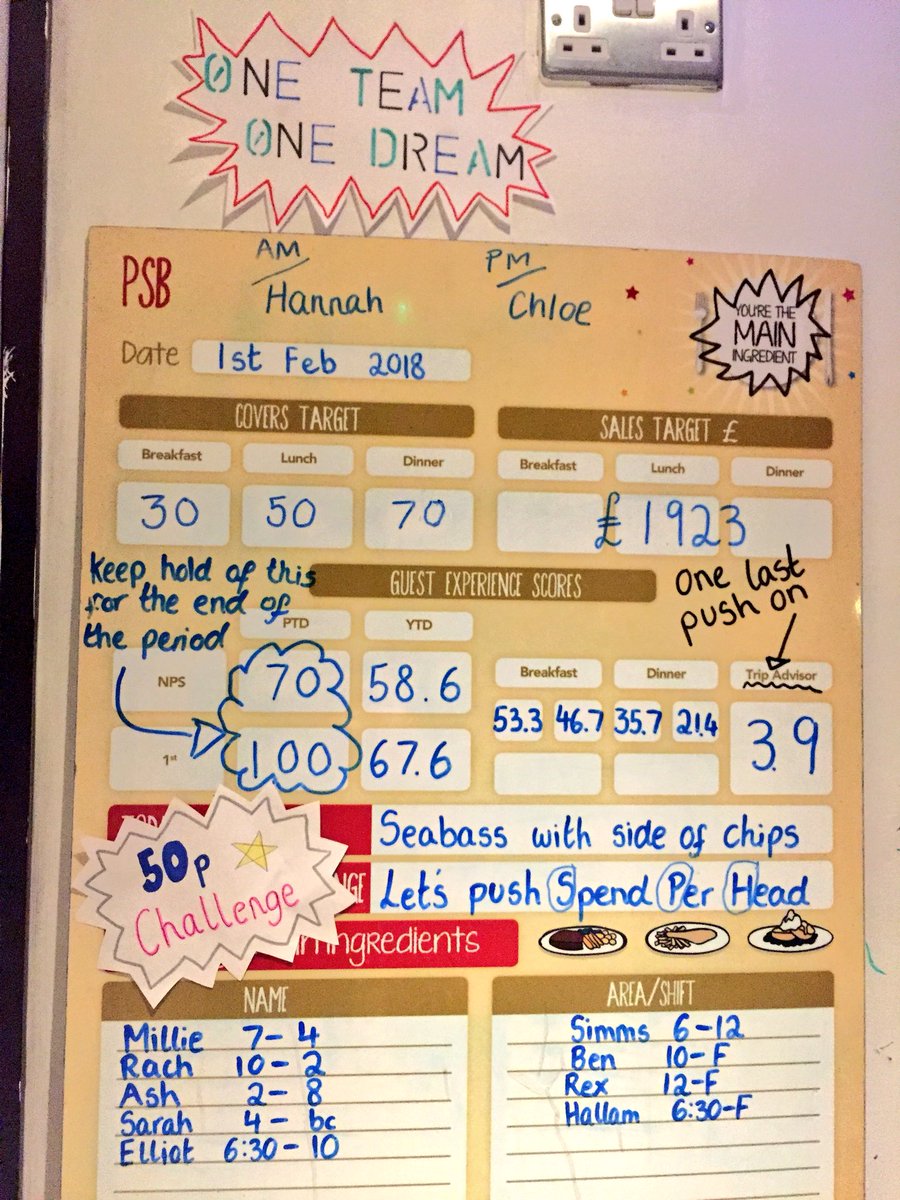 ONE TEAM
ONE DREAM
PSB
AM
Hannah
PM
Chloe
YOU'RE THE
MAIN
INGREDIENT
Date 1st Feb 2018
COVERS TARGET
Breakfast Lunch Dinner
30 50 70
SALES TARGET £
Breakfast Lunch Dinner
£1923
Keep hold of this
for the end of
the period
GUEST EXPERIENCE SCORES
one last
push on
PTD YTD
NPS 70 58.6
1st 100 67.6
Breakfast Dinner Trip Advisor
53.3 46.7 35.7 21.4 3.9
Seabass with side of chips
50p
Challenge
Let's push Spend Per Head
ingredients
NAME
Millie 7-4
Rach 10-2
Ash 2-8
Sarah 4-bc
Elliot 6:30-10
AREA/SHIFT
Simms 6-12
Ben 10-F
Rex 12-F
Hallam 6:30-F